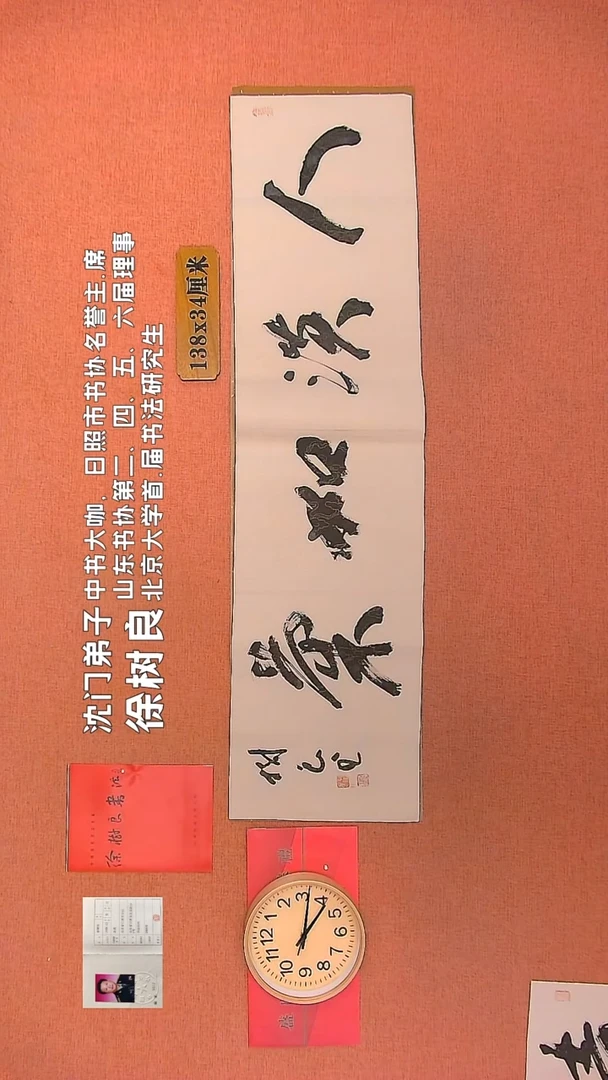 沈门弟子 中书大咖、日照市书协名誉主席
徐树良 山东书协第二、四、五、六届理事
北京大学首届书法研究生
138x34厘米
人淡如菊
徐樹良書法
12
1
2
3
4
5
6
7
8
9
10
11